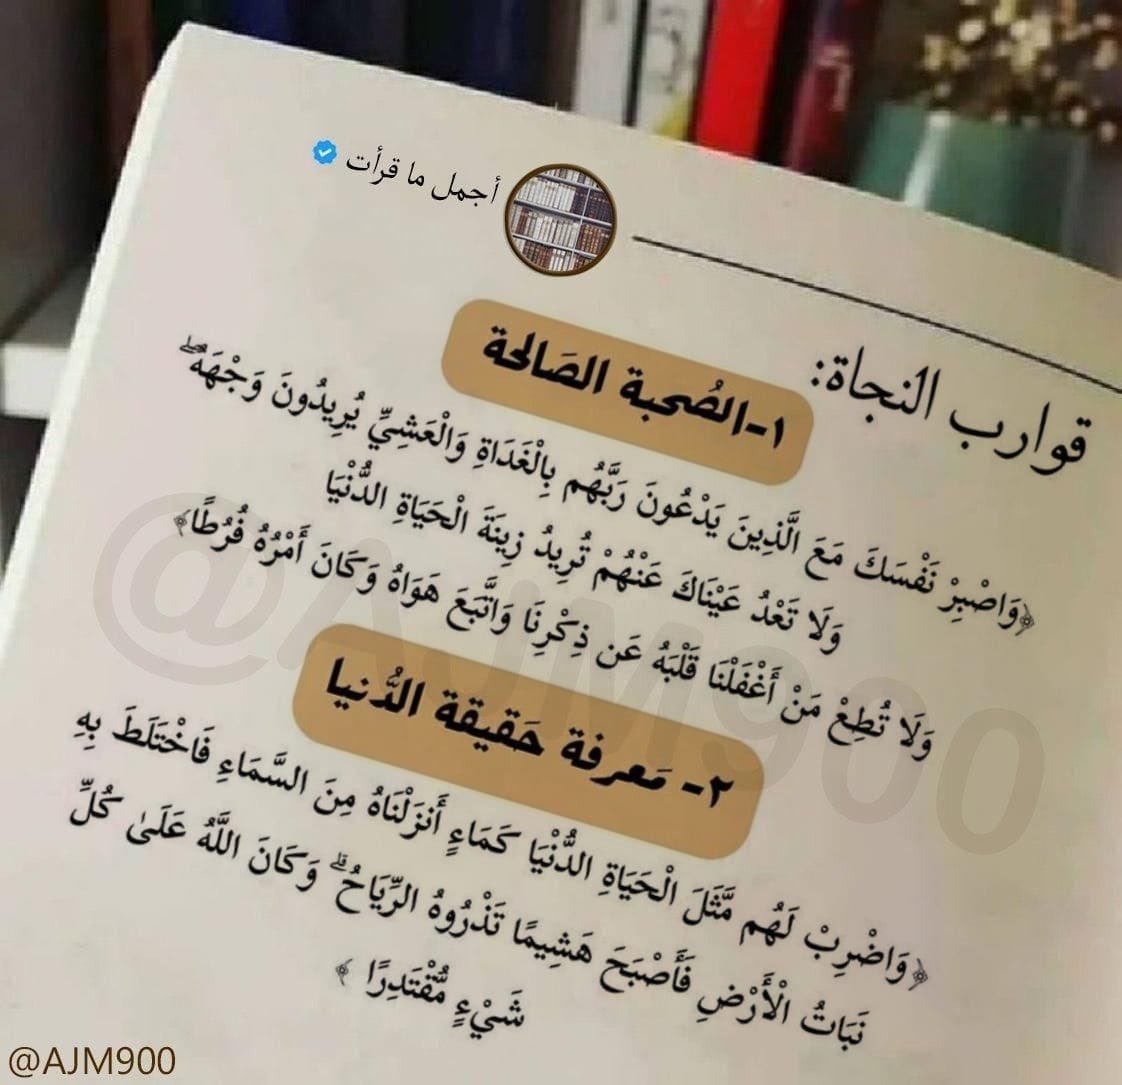 أجمل ما قرأت
قوارب النجاة:
١-الصُحبة الصَالحة
﴿وَاصْبِرْ نَفْسَكَ مَعَ الَّذِينَ يَدْعُونَ رَبَّهُم بِالْغَدَاةِ وَالْعَشِيِّ يُرِيدُونَ وَجْهَهُ ۖ
وَلَا تَعْدُ عَيْنَاكَ عَنْهُمْ تُرِيدُ زِينَةَ الْحَيَاةِ الدُّنْيَا
وَلَا تُطِعْ مَنْ أَغْفَلْنَا قَلْبَهُ عَن ذِكْرِنَا وَاتَّبَعَ هَوَاهُ وَكَانَ أَمْرُهُ فُرُطًا﴾
٢- مَعرفة حَقيقة الدُّنيا
﴿وَاضْرِبْ لَهُم مَّثَلَ الْحَيَاةِ الدُّنْيَا كَمَاءٍ أَنزَلْنَاهُ مِنَ السَّمَاءِ فَاخْتَلَطَ بِهِ
نَبَاتُ الْأَرْضِ فَأَصْبَحَ هَشِيمًا تَذْرُوهُ الرِّيَاحُ ۗ وَكَانَ اللَّهُ عَلَىٰ كُلِّ
شَيْءٍ مُّقْتَدِرًا ﴾
@AJM900
@AJM900